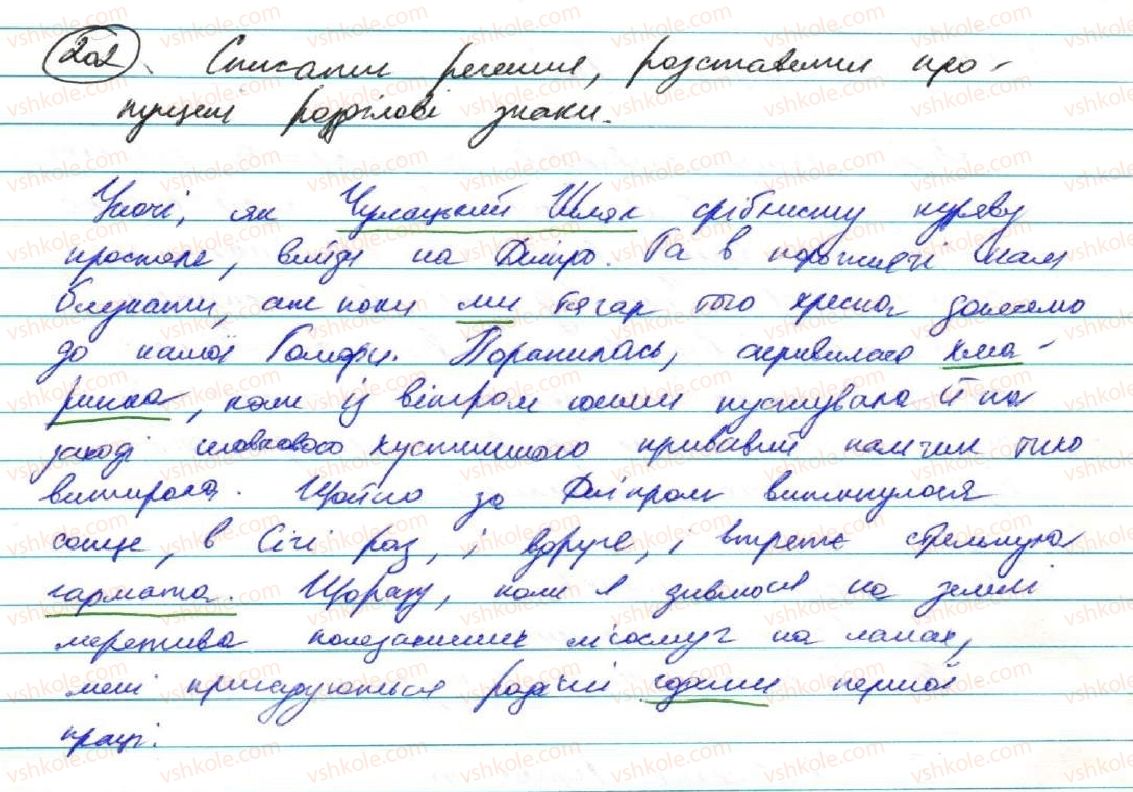 202. Списати речення, розставити про-
пущені розділові знаки.
Уночі, як Чумацький Шлях сріблисту куряву
простеле, вийди на Дніпро. Та в порожнечі нам
блукати, аж поки ми тягар того хреста донесемо
до нашої Гомори. Поранилась, скривилася хма-
ринка, коли із вітром юним пустувала й на
заході шовкового хустиною кривавий пальчик тихо
витирала. Щойно за Дніпром викинулося
сонце, в Січі раз, і вдруге, і втретє стрельнула
гармата. Щоразу, коли я дивлюся на зелені
мережива полезахисних лісосмуг на ланах,
мені пригадуються радісні години першої
праці.